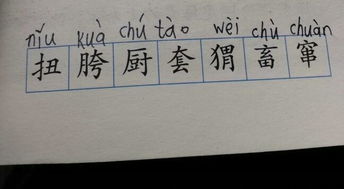 niǔ kuà chú tào wèi chù chuàn
扭 胯 厨 套 猬 畜 窜